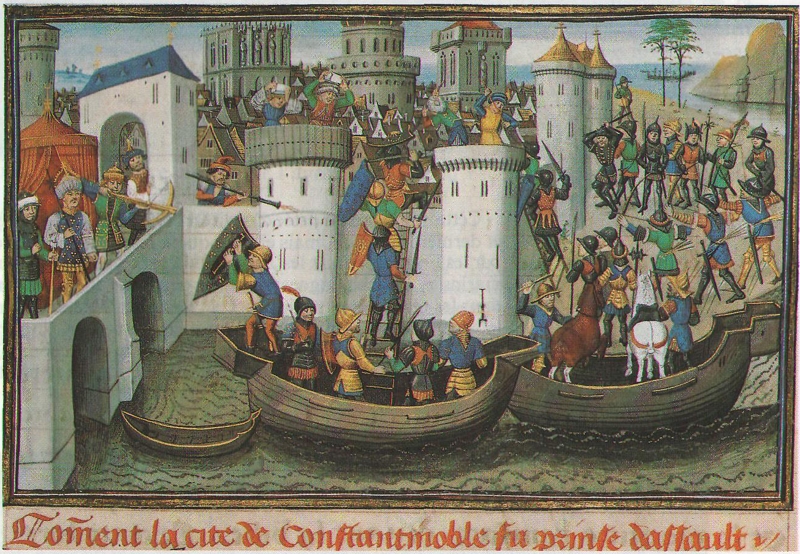 Com̃ent la cite de Constantinoble fu prinse dassault